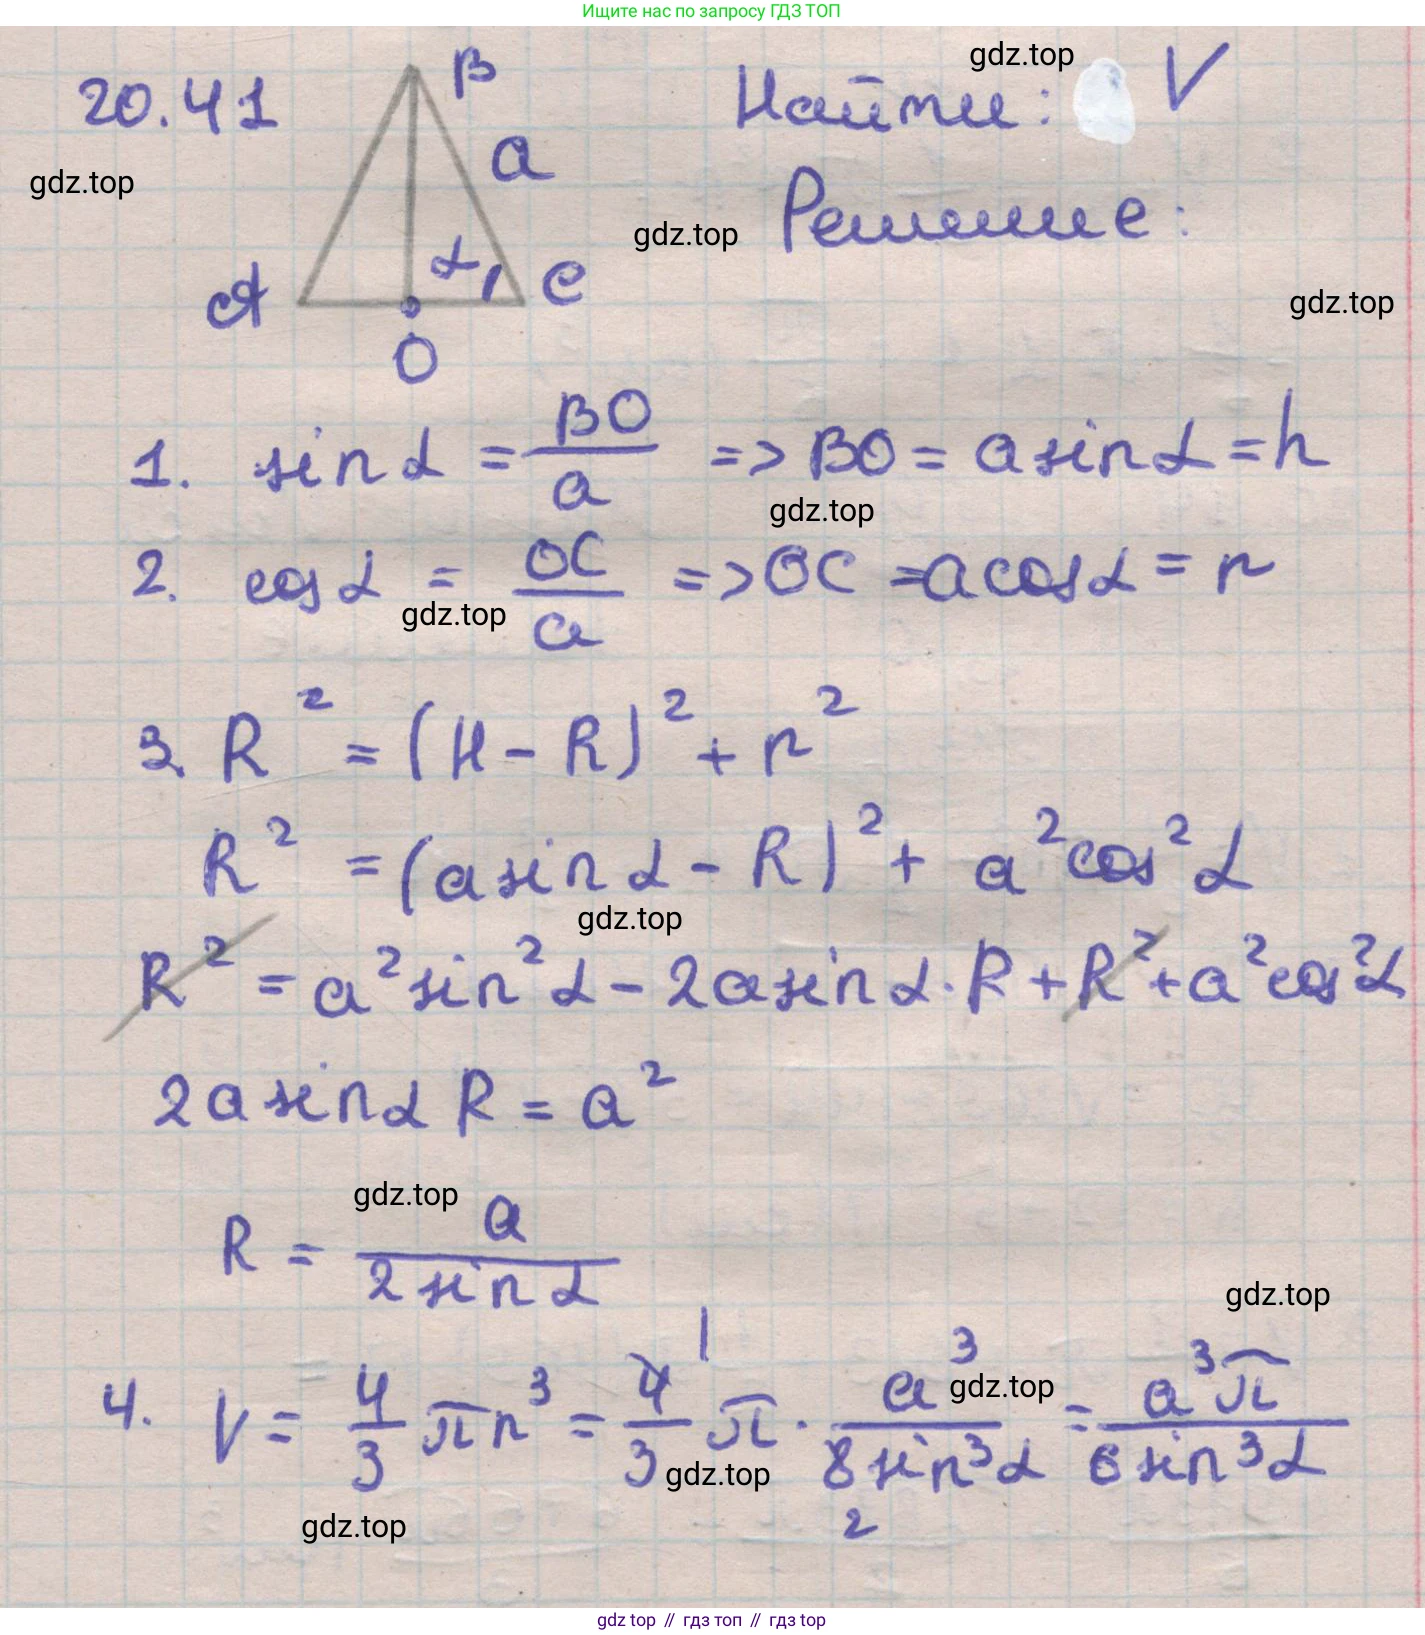 Ищите нас по запросу ГДЗ ТОП
20.41
B
a
A
α
C
O
Найти: V
Решение:
gdz.top
gdz.top
gdz.top
gdz.top
1. sin α = BO/a => BO = a sin α = h
gdz.top
2. cos α = OC/a => OC = a cos α = r
gdz.top
3. R² = (H - R)² + r²
R² = (a sin α - R)² + a² cos² α
gdz.top
R² = a² sin² α - 2a sin α · R + R² + a² cos² α
2a sin α R = a²
gdz.top
R = a/(2 sin α)
gdz.top
4. V = 4/3 π r³ = 4/3 π · a³/(8 sin³ α) = a³π/(6 sin³ α)
1
2
gdz.top
gdz.top
gdz.top
gdz top // гдз топ // gdz top